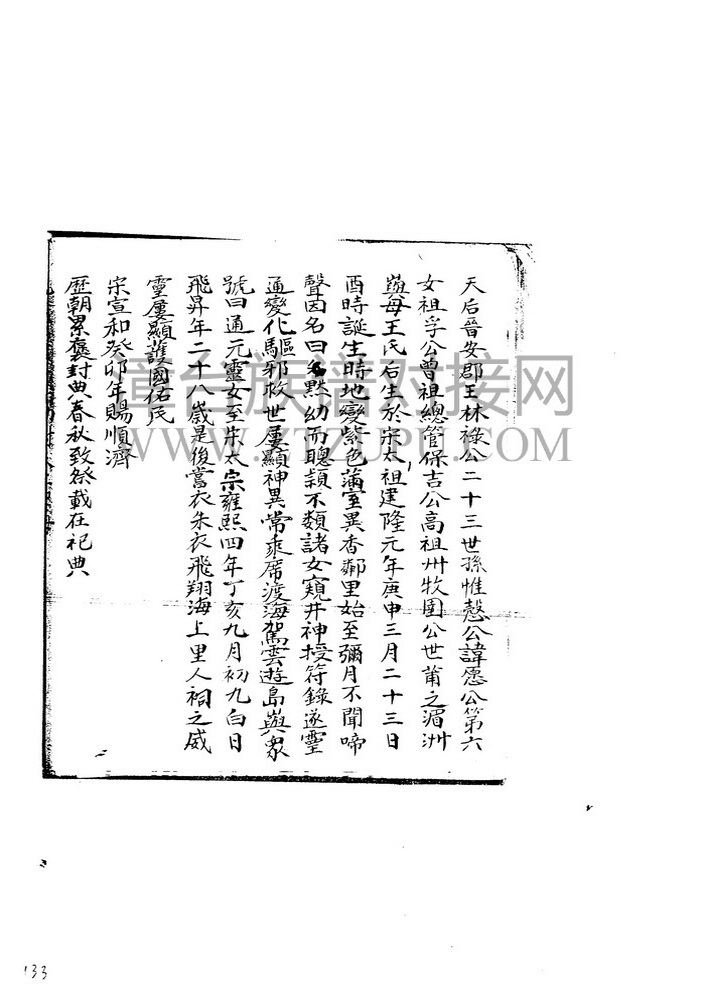 天后晉安郡王林祿公二十三世孫惟慤公諱愿公第六
女祖孚公曾祖總管保吉公高祖州牧圉公世莆之湄洲
嶼母王氏后生於宋太祖建隆元年庚申三月二十三日
酉時誕生時地變紫色滿室異香鄰里始至彌月不聞啼
聲因名曰默幼而聰頴不類諸女窺井神授符錄遂靈
通變化驅邪救世屢顯神異常乘席渡海駕雲遊島嶼衆
號曰通元靈女至宋太宗雍熙四年丁亥九月初九白日
飛昇年二十八歲是後嘗衣朱衣飛翔海上里人祠之威
靈屢顯護國佑民
宋宣和癸卯年賜順濟
歷朝累褒封典春秋致祭載在祀典
章台族譜对接网
WWW.ZTZUPU.COM
133